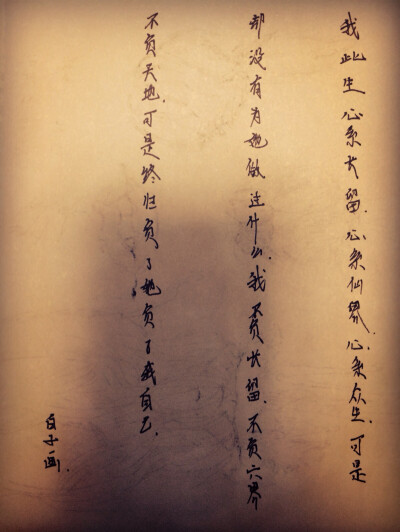 我此生心系长留.心系仙界.心系众生.可是
却没有为她做过什么.我不负长留.不负六界
不负天地.可是终归负了她负了我自己.
白子画.